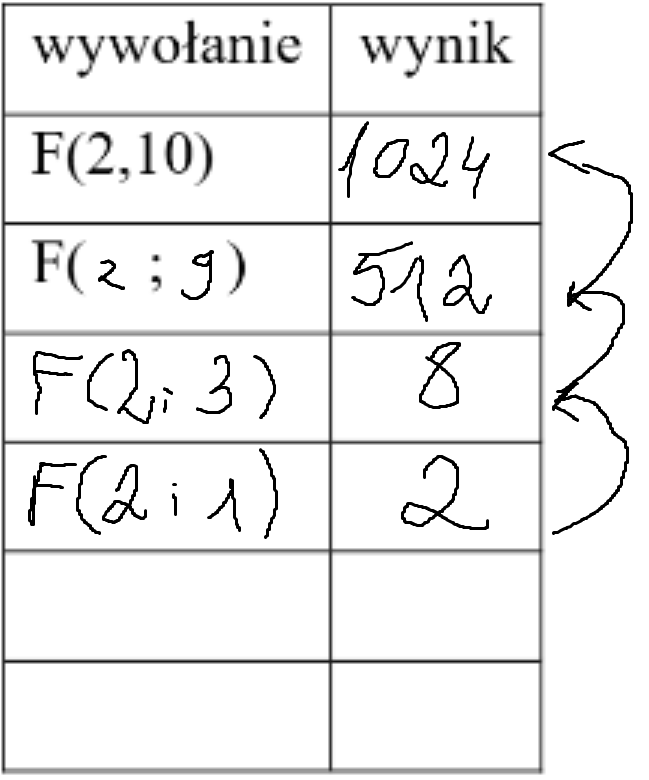 wywołanie wynik
F(2,10) 1024
F(2 ; 9) 512
F(2; 3) 8
F(2 ; 1) 2